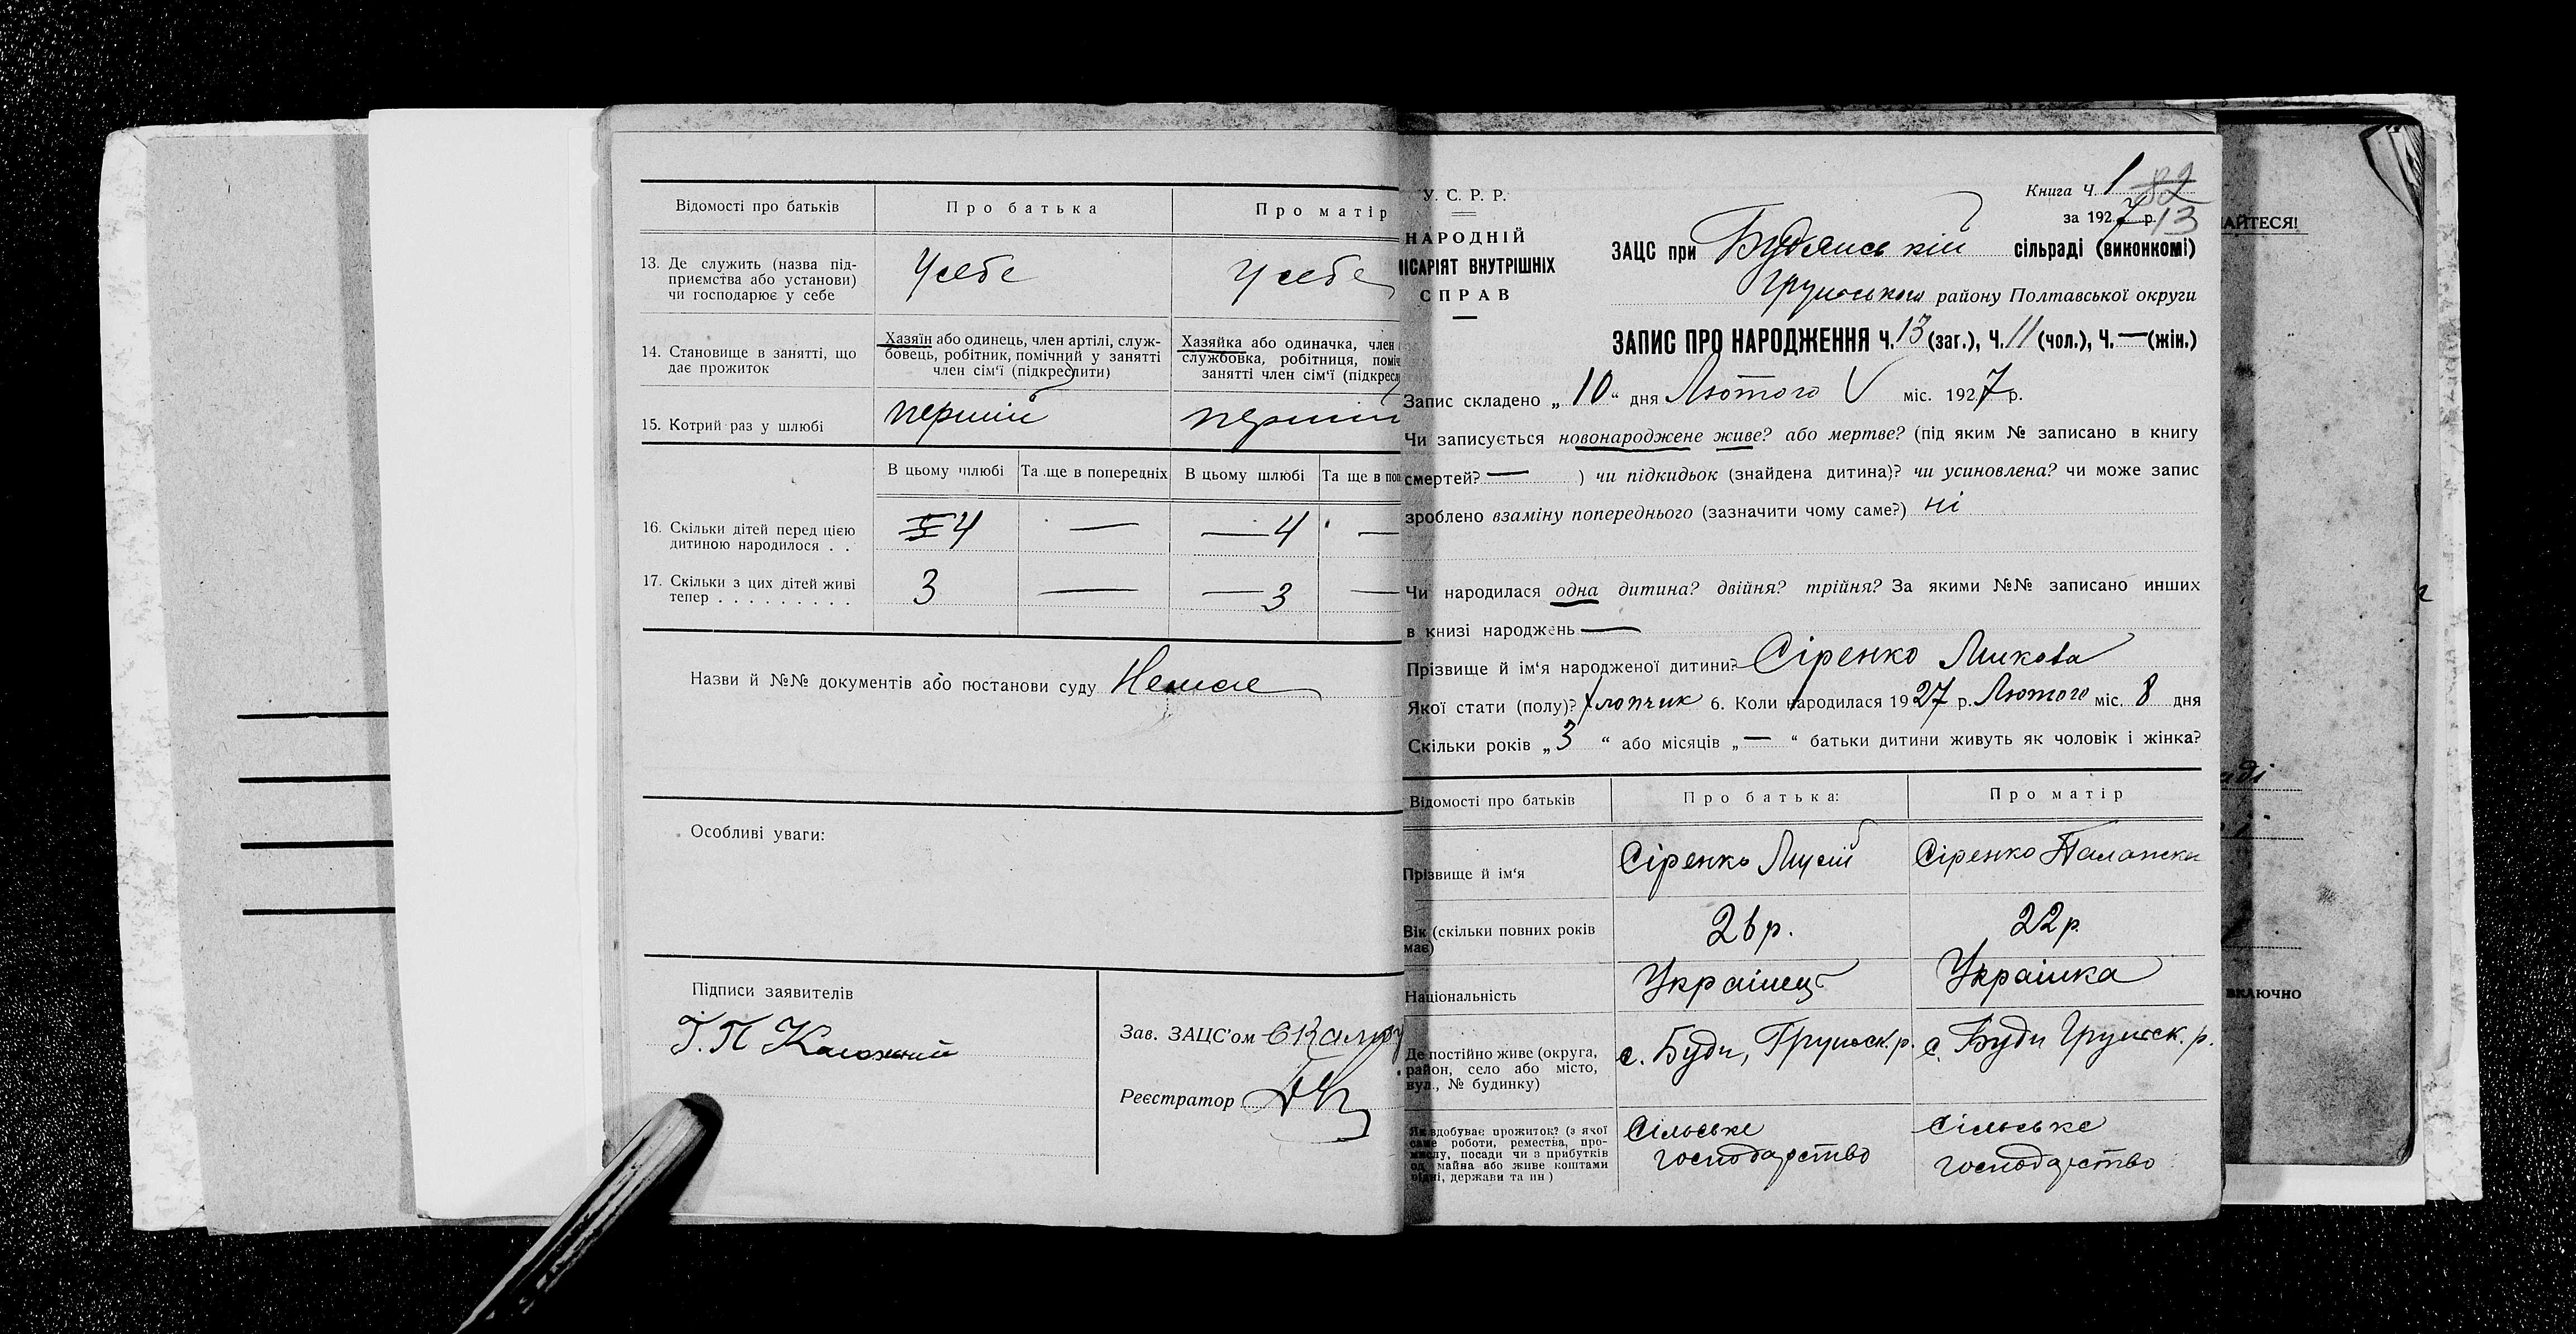 Відомості про батьків
Про батька
Про матір
13. Де служить (назва під-
приємства або установи)
чи господарює у себе
У себе
У себе
14. Становище в занятті, що
дає прожиток
Хазяїн або одинець, член артілі, служ-
бовець, робітник, помічний у занятті
член сім'ї (підкреслити)
Хазяйка або одиначка, член
службовка, робітниця, поміч
занятті член сім'ї (підкресл
15. Котрий раз у шлюбі
перший
перший
В цьому шлюбі
Та ще в попередніх
В цьому шлюбі
Та ще в поп
16. Скільки дітей перед цією
дитиною народилося . .
4 — — 4 —
17. Скільки з цих дітей живі
тепер . . . . . . . . .
3 — — 3 —
Назви й №№ документів або постанови суду Немає
Особливі уваги:
Підписи заявителів
Зав. ЗАЦС'ом
Реєстратор
У. С. Р. Р.
НАРОДНІЙ
ІСАРІЯТ ВНУТРІШНІХ
СПРАВ
Книга Ч. 1 82
за 1927 р. 13
ЗАЦС при Будянській сільраді (виконкомі)
Грунського району Полтавської округи
ЗАПИС ПРО НАРОДЖЕННЯ Ч. 13 (заг.), Ч. 11 (чол.), Ч. — (жін.)
Запис складено „ 10 “ дня Лютого міс. 1927 р.
Чи записується новонароджене живе? або мертве? (під яким № записано в книгу
смертей? — ) чи підкидьок (знайдена дитина)? чи усиновлена? чи може запис
зроблено взаміну попереднього (зазначити чому саме?) ні
Чи народилася одна дитина? двійня? трійня? За якими №№ записано инших
в книзі народжень —
Прізвище й ім'я народженої дитини? Сіренко Микова
Якої стати (полу)? Хлопчик 6. Коли народилася 1927 р. Лютого міс. 8 дня
Скільки років „ 3 “ або місяців „ — “ батьки дитини живуть як чоловік і жінка?
Відомості про батьків
Про батька:
Про матір
Прізвище й ім'я
Сіренко Мусій
Сіренко Палажка
Вік (скільки повних років
має)
26 р.
22 р.
Національність
Українець
Українка
Де постійно живе (округа,
район, село або місто,
вул., № будинку)
с. Буди, Грунськ. р.
с. Буди Грунськ. р.
Як здобуває прожиток? (з якої
саме роботи, ремества, про-
мислу, посади чи з прибутків
од майна або живе коштами
рідні, держави та ин)
Сільське
господарство
Сільське
господарство
АЙТЕСЯ!
аді
включно